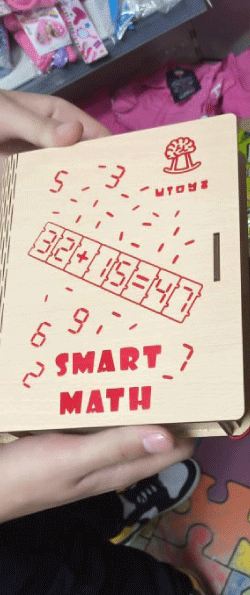 UTOYS
5 3
32+15=47
6 9
2 7
SMART
MATH